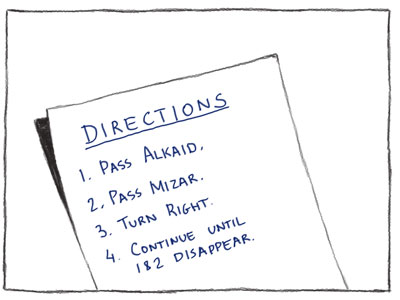 DIRECTIONS
1. PASS ALKAID.
2. PASS MIZAR.
3. TURN RIGHT.
4. CONTINUE UNTIL
1&2 DISAPPEAR.